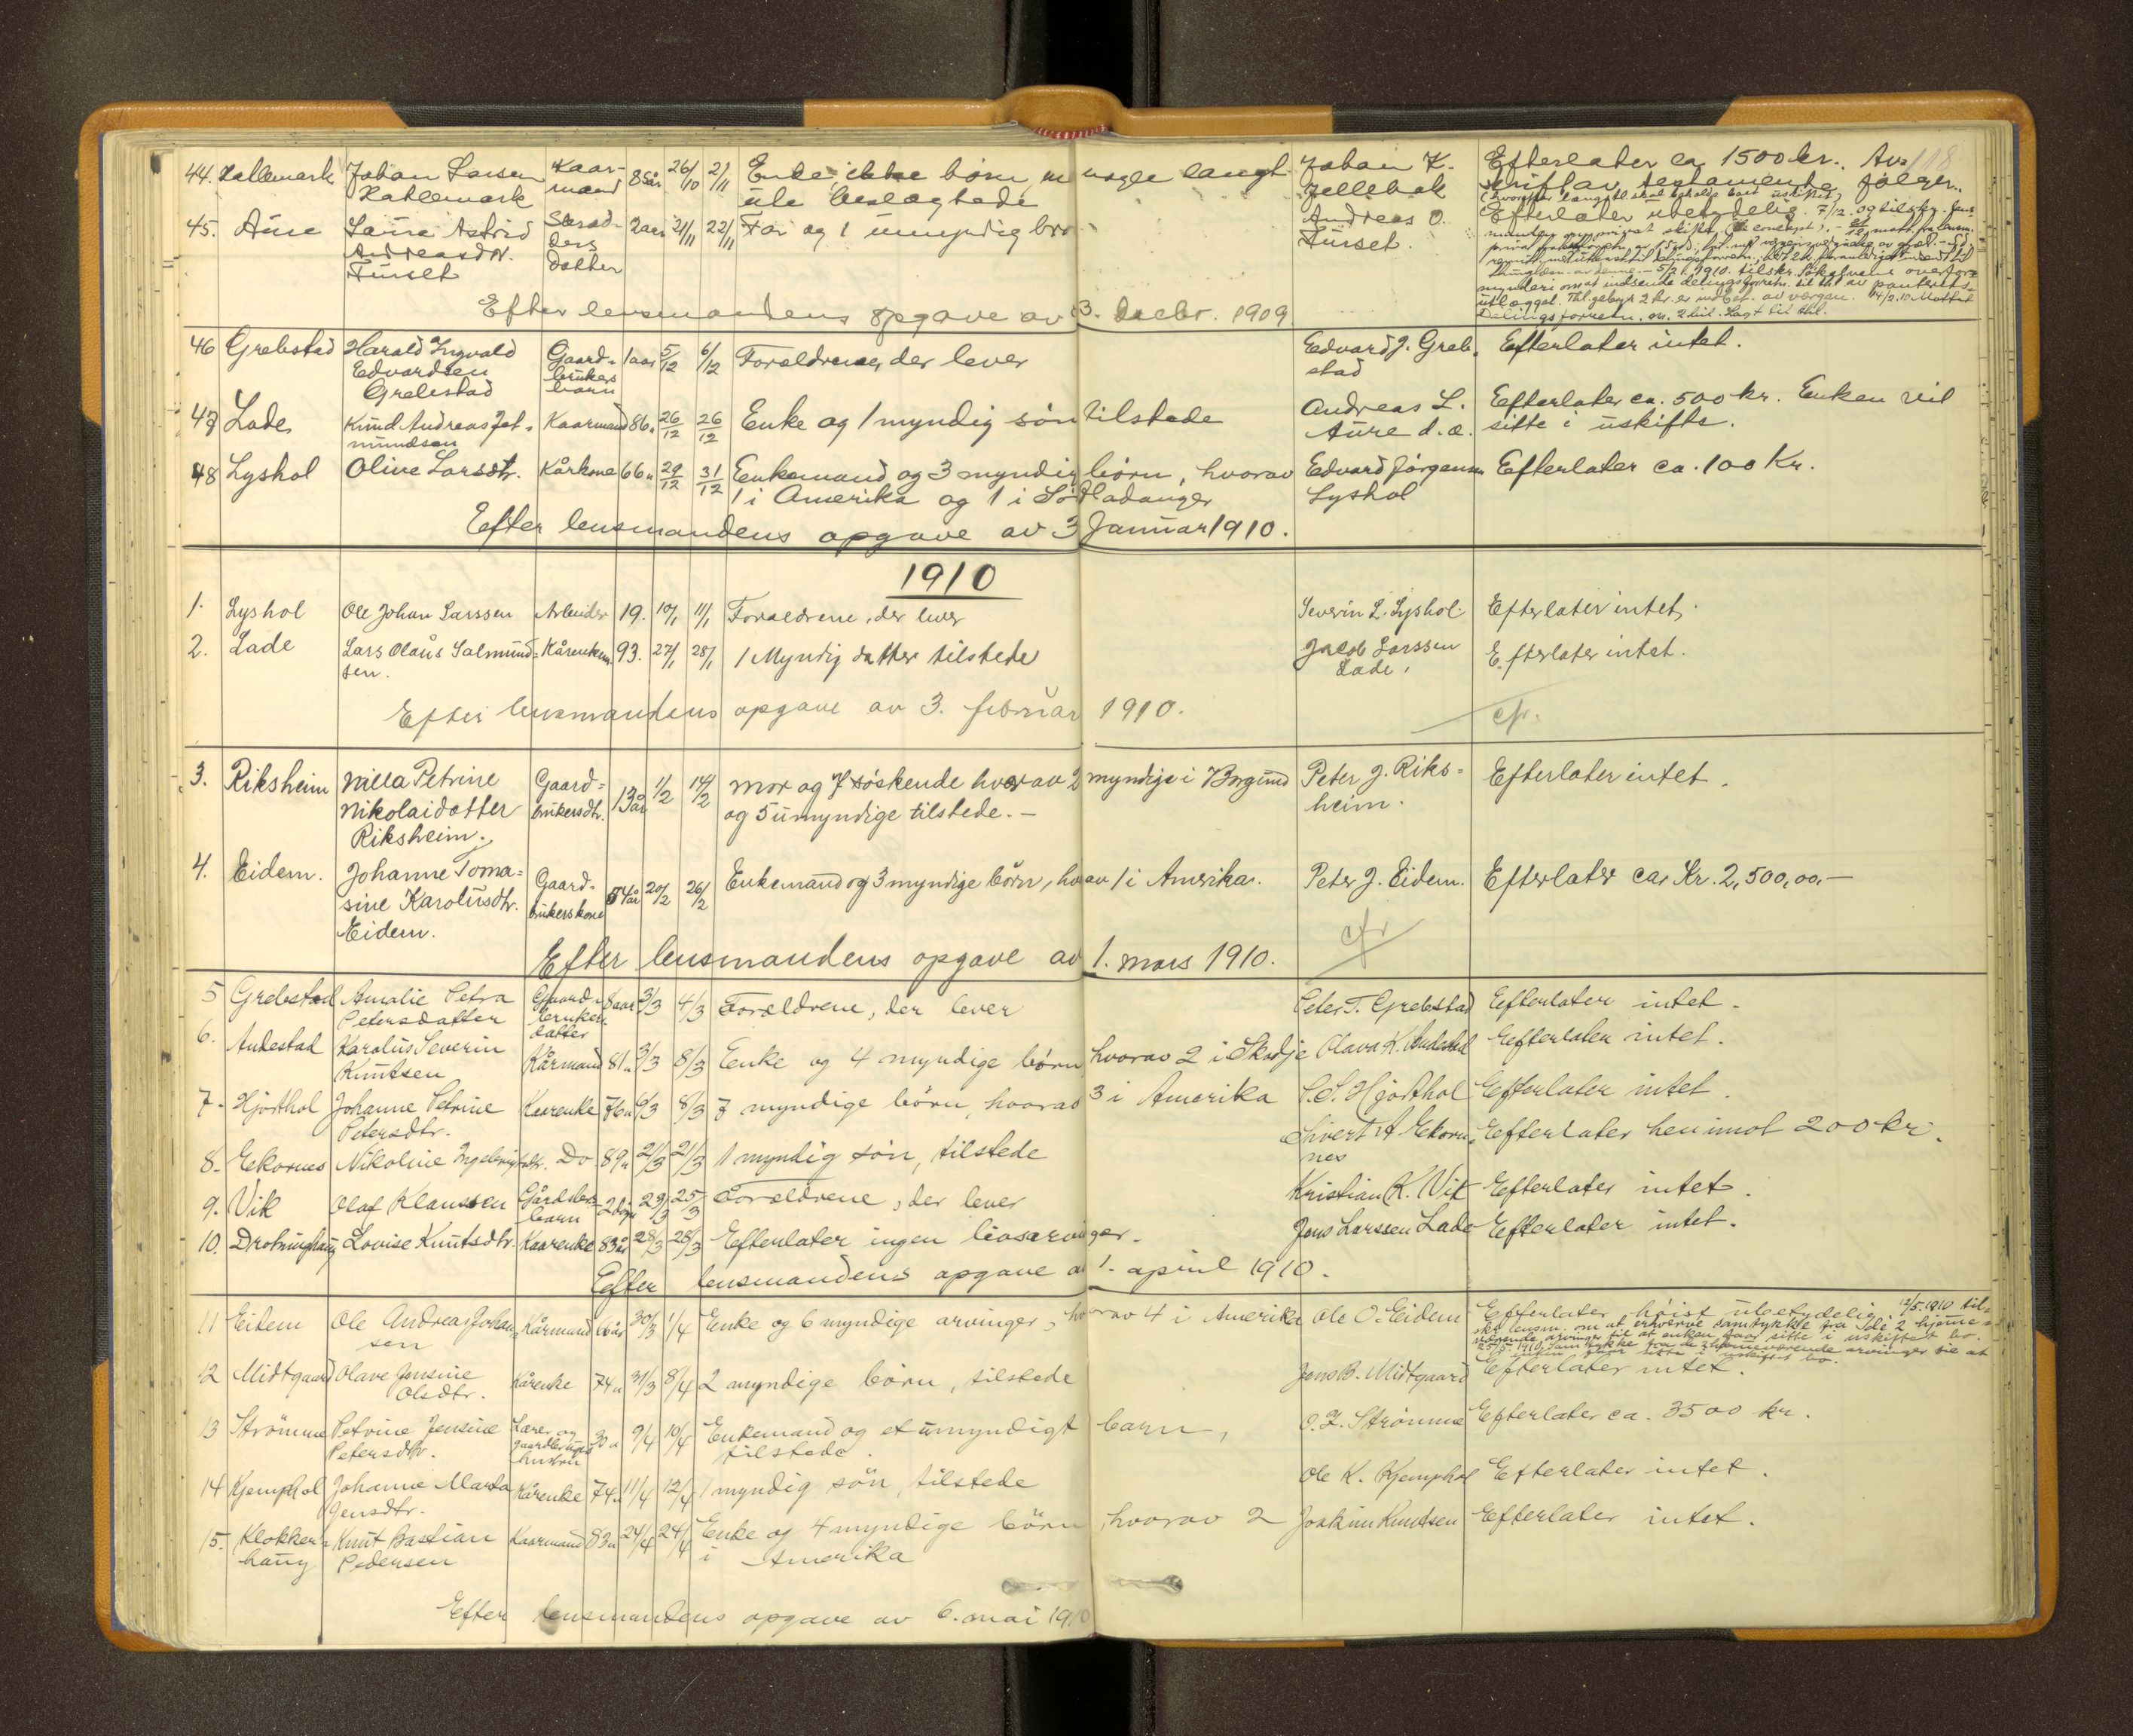 44. Johan Larsen Kaar- 85 år 26/10 2/11 Enke, ikke børn, nogle langt Johan K. Efterlater ca 1500 kr. Av-
mand ute beslægtede Jellebak skrift av testamente følger.
45. Aure Laura Astrid 2 aar 21/11 22/11 Far og 1 umyndig bror Andreas O. Efterlater ubetydelig. 7/12
Andreasdtr. datter Furset
Furset
Efter lensmandens opgave av 3. decbr. 1909
46 Grebstad Harald Ingvald Gaard- 1 aar 5/12 6/12 Forældrene, der lever Edvard J. Greb- Efterlater intet.
Edvardsen brukers stad
Grebstad barn
47 Lade Knud Andreas Jet- Kaarmand 86 " 26/12 26/12 Enke og 1 myndig søn tilstede Andreas L. Efterlater ca. 500 kr. Enken vil
mundsen Aure d.æ. sitte i uskifte.
48 Lyshol Olive Larsdtr. Kårkone 66 " 29/12 31/12 Enkemand og 3 myndig børn, hvorav Edvard Jörgensen Efterlater ca. 100 Kr.
1 i Amerika og 1 i Lyshol
Efter lensmandens opgave av 3 Januar 1910.
1910
1. Lyshol Ole Johan Larssen Arbeider 19. 10/1 11/1 Forældrene, der lever Severin L. Lyshol. Efterlater intet.
2. Lade Lars Olaus Salmund- Kårenkem. 93. 27/1 28/1 1 Myndig datter tilstede Jacob Larssen Efterlater intet.
sen. Lade.
Efter lensmandens opgave av 3. februar 1910. cfr.
3. Riksheim Nilla Petrine Gaard- 13 år 1/2 14/2 Mor og 7 søskende hvorav 2 myndige i Borgund Peter J. Riks- Efterlater intet.
Nikolaidatter brukersdtr. og 5 umyndige tilstede. — heim.
Riksheim.
4. Eidem. Johanne Toma- Gaard- 54 år 20/2 26/2 Enkemand og 3 myndige børn, hvorav 1 i Amerika. Peter J. Eidem. Efterlater ca. Kr. 2,500,00.—
sine Karolusdtr. brukerskone
Eidem. cfr
Efter lensmandens opgave av 1. mars 1910.
5 Grebstad Amalie Petra Gaard- 8 aar 3/3 4/3 Forældrene, der lever Peter T. Grebstad Efterlater intet.
Petersdatter bruker-
datter
6. Andestad Karolus Severin Kårmand 81 " 3/3 8/3 Enke og 4 myndige børn hvorav 2 i Skodje Olava K. Andestad Efterlater intet.
Knutsen
7. Hjorthol Johanne Petrine Kaarenke 76 " 6/3 8/3 7 myndige børn, hvorav 3 i Amerika Hjorthol Efterlater intet.
Petersdtr.
8. Ekornes Nikoline Do 89 " 21/3 21/3 1 myndig søn, tilstede Sivert A Ekor- Efterlater henimot 200 kr.
nes
9. Vik Olaf Klaussen barn 23/3 25/3 Forældrene, der lever Kristian K. Vik Efterlater intet.
10. Drotninghaug Lovise Knutsdtr. Kaarenke 83 år 28/3 28/3 Efterlater ingen livsarvinger. Jens Larssen Lade Efterlater intet.
Efter lensmandens opgave av 1. april 1910.
11 Eidem Ole Andreas Johan- Kårmand 66 år 30/3 1/4 Enke og 6 myndige arvinger, hvorav 4 i Amerika Ole O. Eidem Efterlater høist ubetydelig. 12/5.1910 til-
sen skr. lensm. om at erhverve samtykke fra de 2 hjemme-
værende arvinger til at enken faar sitte i uskiftet bo.
25/5.1910. Samtykke fra de 2 hjemmeværende arvinger til at
enken faar sitte i uskiftet bo.
12 Midtgaard Olave Jensine Kårenke 74 " 31/3 8/4 2 myndige børn, tilstede Jens B. Midtgaard Efterlater intet.
Olsdtr.
13 Strömme Petrine Jensine Lærer og 30 " 9/4 10/4 Enkemand og et umyndigt barn, Strömme Efterlater ca. 3500 kr.
Petersdtr. hustru tilstede.
14 Kjemphol Johanne Marta Kårenke 74 " 11/4 12/4 1 myndig søn, tilstede Ole K. Kjemphol Efterlater intet.
Jensdtr.
15. Klokker- Knut Bastian Kaarmand 83 " 24/4 24/4 Enke og 4 myndige børn, hvorav 2 Joakim Knutsen Efterlater intet.
haug Pedersen i Amerika
Efter lensmandens opgave av 6. mai 1910